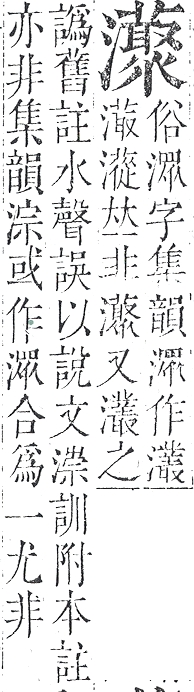 俗潀字集韻潀作灇
漎𠀤非又灇之
譌舊註水聲誤以說文潨訓附本註
亦非集韻淙或作潀合爲一尤非